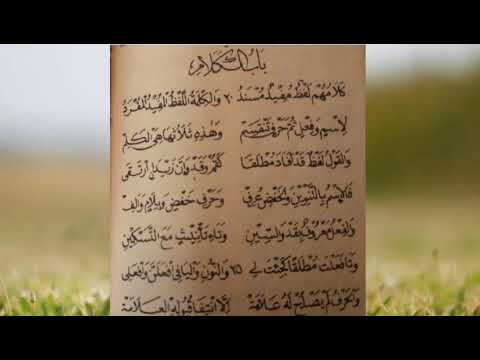 بَابُ الْكَلَامِ
كَلَامُهُمْ لَفْظٌ مُفِيدٌ مُسْنَدُ ٢٠ وَالْكِلْمَةُ اللَّفْظُ الْمُفِيدُ الْمُفْرَدُ
لِاسْمٍ وَفِعْلٍ ثُمَّ حَرْفٍ تَنْقَسِمْ وَهٰذِهِ ثَلَاثُهَا هِيَ الْكَلِمْ
وَالْقَوْلُ لَفْظٌ قَدْ أَفَادَ مُطْلَقَا كَقُمْ وَقَدْ وَإِنَّ زَيْدًا ارْتَقَى
فَالِاسْمُ بِالتَّنْوِينِ وَالْخَفْضِ عُرِفْ وَحَرْفِ خَفْضٍ وَبِلَامٍ وَأَلِفْ
وَالْفِعْلُ مَعْرُوفٌ بِقَدْ وَالسِّينِ وَتَاءِ تَأْنِيثٍ مَعَ التَّسْكِينِ
وَتَا فَعَلْتَ مُطْلَقًا كَجِئْتَ لِي ٢٥ وَالنُّونِ وَالْيَا فِي افْعَلَنَّ وَافْعَلِي
وَالْحَرْفُ لَمْ يَصْلُحْ لَهُ عَلَامَةْ إِلَّا انْتِفَا قَبُولِهِ الْعَلَامَةْ